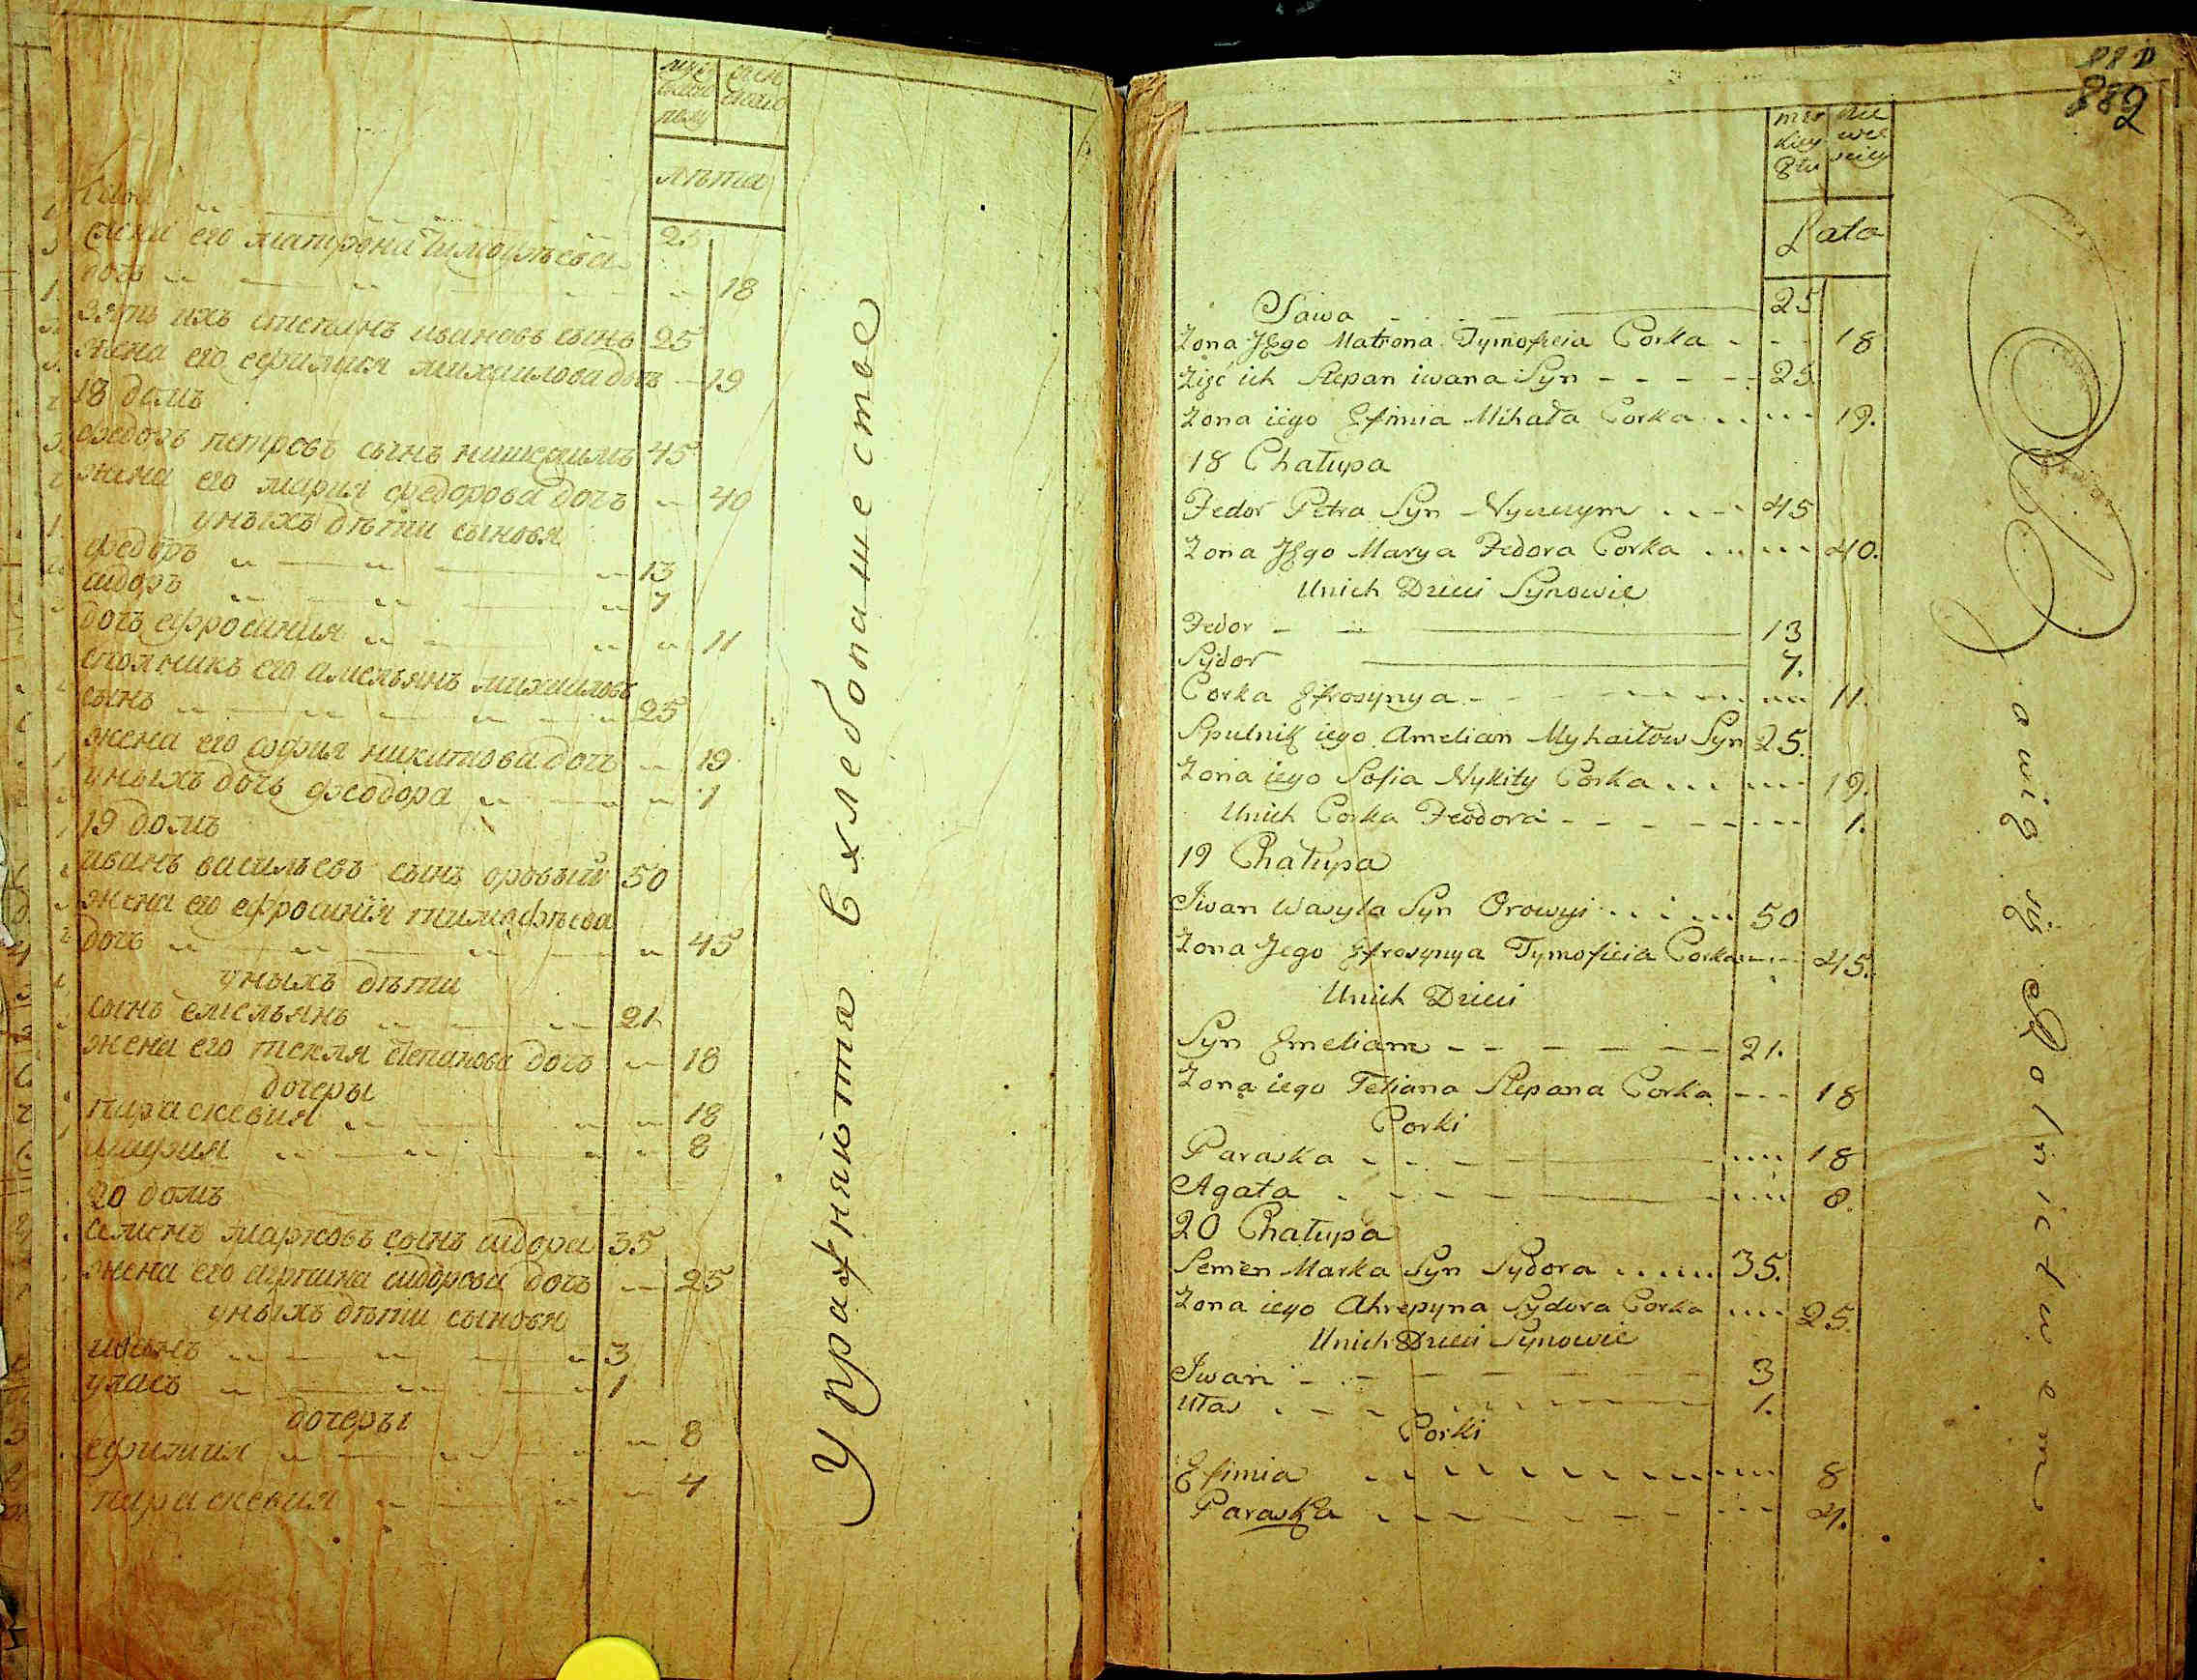 муж
ского
полу
жен
ского
лѣта
Сава 25
жена его матрона тимофѣева
дочь 18
зять ихъ степанъ ивановъ сынъ 25
жена его ефимия михаилова дочь 19
18 домъ
федоръ петровъ сынъ 45
жена его мария федорова дочь 40
уныхъ дѣти сыновя
федоръ 13
сидоръ 7
дочь ефросиния 11
его амельянъ михаиловъ
сынъ 25
жена его софия никитова дочь 19
уныхъ дочь феодора 1
19 домъ
иванъ васильевъ сынъ оровый 50
жена его ефросиния тимофѣева
дочь 45
уныхъ дѣти
сынъ емельянъ 21
жена его текля степанова дочь 18
дочеры
параскевия 18
8
20 домъ
семенъ марковъ сынъ сидора 35
жена его агрипина сидорова дочь 25
уныхъ дѣти сыновя
иванъ 3
уласъ 1
дочеры
ефимия 8
параскевия 4
Упражняюттся в хлебопашестве
882
882
męz
kiey
płu
Lata
Sawa 25
Zona Jego Matrona Tymofieia Corka 18
Zięć ich Stepan iwana Syn 25
Zona iego Efimia Mihała Corka 19.
18 Chałupa
Fedor Petra Syn 45
Zona Jego Marya Fedora Corka 40.
Unich Dzieci Synowie
Fedor 13
Sydor 7.
Corka Efrosynya 11.
Spulnik iego Amelian Myhaiłow Syn 25.
Zona iego Sofia Nykity Corka 19.
Unich Corka Feodora 1.
19 Chałupa
Jwan Wasyla Syn Orowyi 50
Zona Jego Efrosynya Tymofieia Corka 45.
Unich Dzieci
Syn Emelian 21.
Zona iego Tetiana Stepana Corka 18
Corki
Paraska 18
Agata 8.
20 Chałupa
Semen Marka Syn Sydora 35.
Zona iego Ahrepyna Sydora Corka 25.
Unich Dzieci Synowie
Jwan 3
Ułas 1.
Corki
Efimia 8
Paraska 4.
Bawią się Rolnictwem.